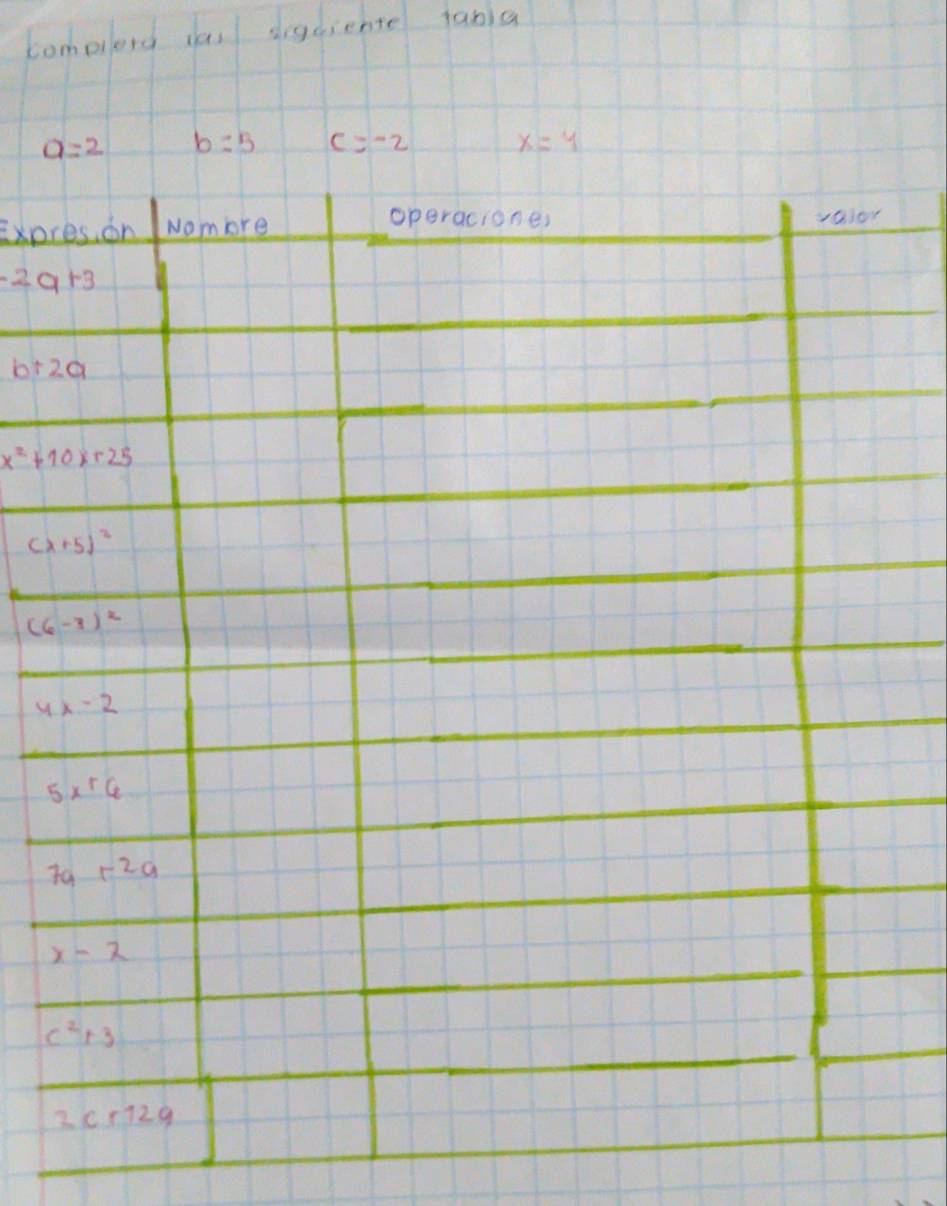 completa las siguiente tabla
a=2 b=5 c=-2 x=4
Expresión Nombre operaciones valor
-2a+3
b+2a
x²+10x+25
(x+5)²
(6-3)²
4x-2
5x+6
7a+2a
x-2
c²+3
2c+12a